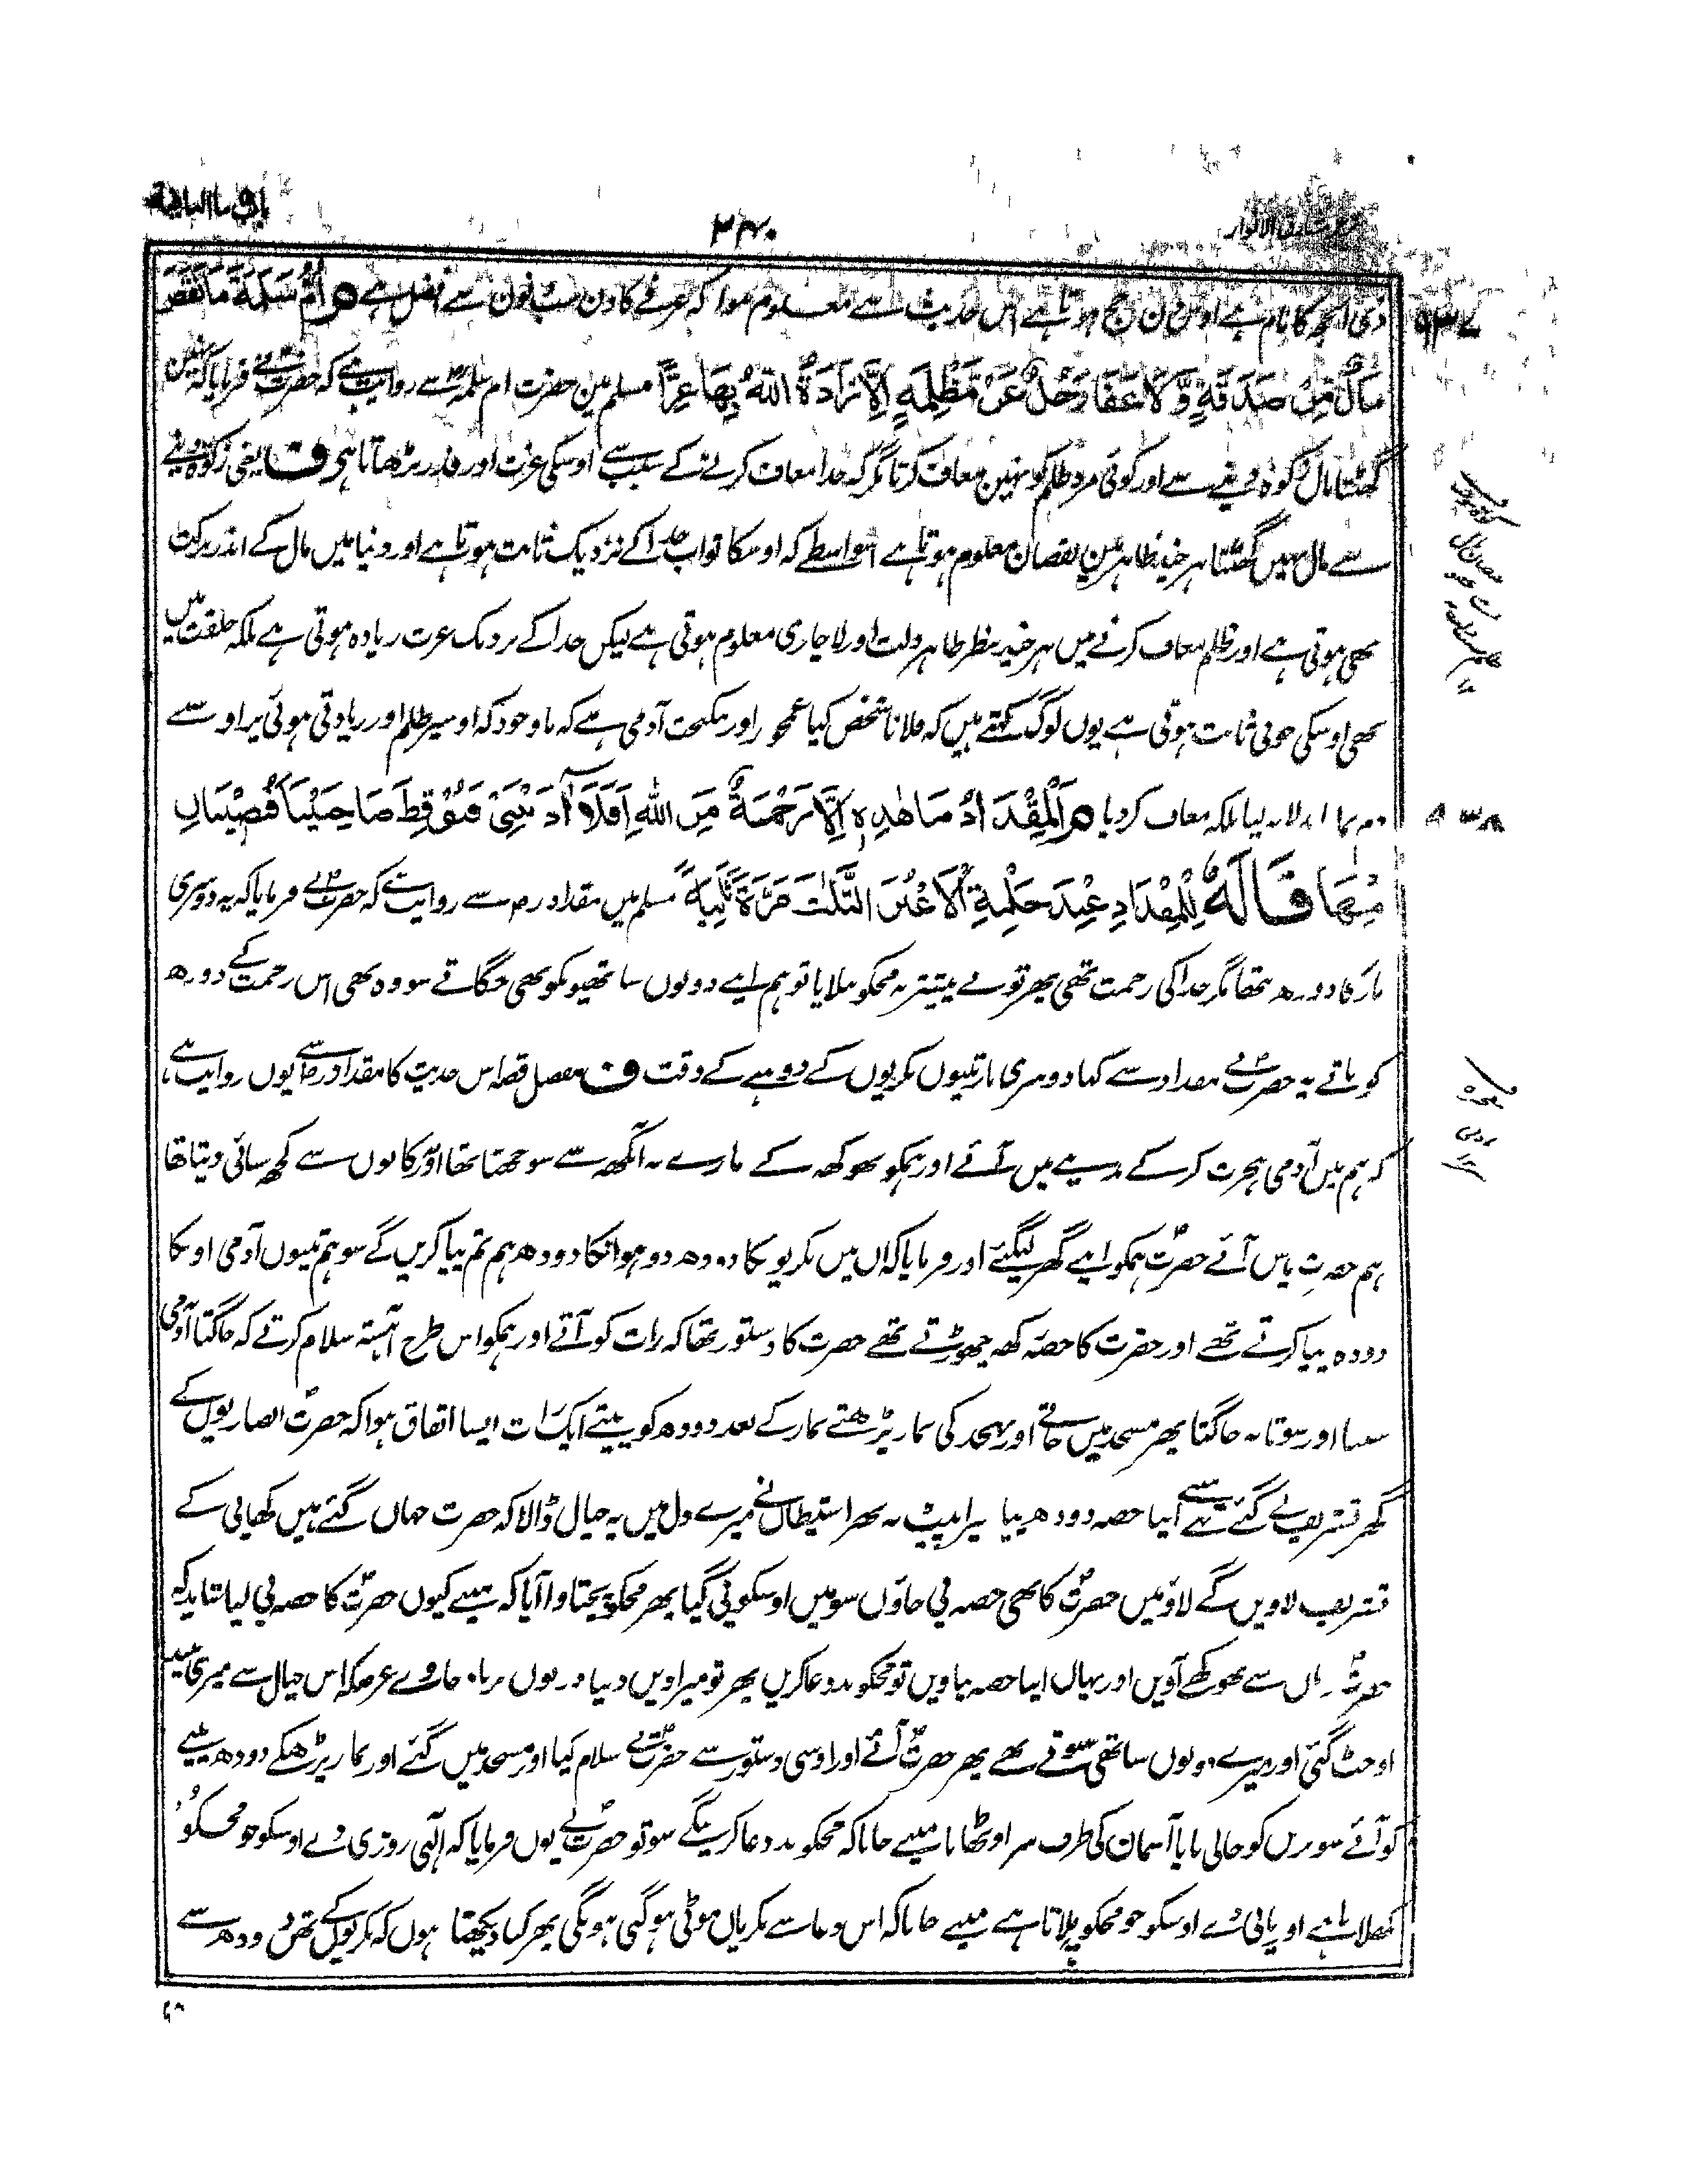 ۲۴۰
ذی الحجہ کا نام ہے اوس دن حج ہوتا ہے اس حدیث سے معلوم ہوا کہ عرفے کا دن سب دنون سے افضل ہے م اُمُّ سَلَمَةَ مَا نَقَصَ
مَالٌ مِنْ صَدَقَةٍ وَّلَا عَفَا رَجُلٌ عَنْ مَظْلِمَةٍ اِلَّا زَادَهُ اللهُ بِهَا عِزًّا مسلم مین حضرت ام سلمہ رض سے روایت ہے کہ حضرت نے فرمایا کہ نہین
گھٹتا مال زکوٰۃ دینے سے اور کوئی مرد ظلم کو نہین معاف کرتا مگر کہ خدا معاف کرنے کے سبب سے اوسکی عزت اور قدر بڑھاتا ہی ف یعنی زکوٰۃ دینے
سے مال نہیں گھٹتا ہر چند ظاہر مین نقصان معلوم ہوتا ہے اسواسطے کہ اوسکا ثواب خدا کے نزدیک ثابت ہوتا ہے اور دنیا میں مال کے اندر برکت
بھی ہوتی ہے اور ظلم معاف کرنے میں ہر چند بنظر ظاہر ذلت اور لاچاری معلوم ہوتی ہے لیکن خدا کے نزدیک عزت زیادہ ہوتی ہے بلکہ خلقت میں
بھی اوسکی خوبی ثابت ہوتی ہے یوں لوگ کہتے ہیں کہ فلانا شخص کیا غمخور اور نیکبخت آدمی ہے کہ باوجود کہ اوسپر ظلم اور زیادتی ہوئی پر اوسنے
بدلا نہ لیا بلکہ معاف کردیا م اَلْمِقْدَادُ مَا هٰذِهِ اِلَّا رَحْمَةٌ مِنَ اللهِ اَفَلَا آذَنْتَنِیْ فَنُوْقِظَ صَاحِبَيْنَا فَيُصِيْبَانِ
مِنْهَا قَالَهٗ لِلْمِقْدَادِ عِنْدَ حَلْبِهِ الْاَعْنُزَ الثَّلٰثَ مَرَّةً ثَانِيَةً مسلم میں مقداد رض سے روایت ہے کہ حضرت نے فرمایا کہ یہ دوسری
بار کا دودھ نتھا مگر خدا کی رحمت تھی پھر تونے پیشتر نہ مجکو بلایا تو ہم اپنے دونوں ساتھیو نکو بھی جگاتے سو وہ بھی اس رحمت کے دودھ
کو پاتے یہ حضرت نے مقداد سے کہا دوسری بار تینوں بکریوں کے دوہنے کے وقت ف مفصل قصہ اس حدیث کا مقداد رض سے یوں روایت ہے
کہ ہم تین آدمی ہجرت کرکے مدینے میں آئے اور ہمکو بھوکھ کے مارے نہ آنکھ سے سوجھتا تھا اور نہ کانوں سے کچھ سنائی دیتا تھا
ہم حضرت پاس آئے حضرت ہمکو اپنے گھر لیگئے اور فرمایا کہ ان تین بکریو نکا دودھ دوہو انکا دودھ ہم تم پیا کریں گے سو ہم تینوں آدمی اونکا
دودہ پیا کرتے تھے اور حضرت کا حصہ رکھ چھوڑتے تھے حضرت کا دستور تھا کہ رات کو آتے اور ہمکو اس طرح آہستہ سلام کرتے کہ جاگتا آدمی
سنتا اور سوتا نہ جاگتا پھر مسجد میں جاتے اور تہجد کی نماز پڑھتے نماز کے بعد دودھ کو پیتے ایک رات ایسا اتفاق ہوا کہ حضرت انصاریوں کے
گھر تشریف لے گئے تھے میںنے اپنا حصہ دودھ پیا میرا پیٹ نہ بھرا شیطان نے میرے دل میں یہ خیال ڈالا کہ حضرت جہاں گئے ہیں کھا پی کے
تشریف لاویں گے لاؤ میں حضرت کا بھی حصہ پی جاؤں سو میں اوسکو پی گیا پھر مجکو پچتاوا آیا کہ میںنے کیوں حضرت کا حصہ پی لیا شاید کہ
حضرت وہاں سے بھوکھے آویں اور یہاں اپنا حصہ نپاویں تو مجکو بددعا کریں پھر تو میرا دین دنیا دونوں برباد جاوے غرضکہ اس خیال سے میری نیند
اوچٹ گئی اور میرے دونوں ساتھی سوتے تھے پھر حضرت آئے اور اوسی دستور سے حضرت نے سلام کیا اور مسجد میں گئے اور نماز پڑھکے دودھ پینے
کو آئے سو برتن کو خالی پایا آسمان کی طرف سر اوٹھایا میںنے جانا کہ مجکو بددعا کرینگے سو تو حضرت نے یوں فرمایا کہ الٰہی روزی دے اوسکو جو مجکو
کھلاتا ہے اور پانی دے اوسکو جو مجکو پلاتا ہے میںنے جانا کہ اس دعا سے بکریاں موٹی ہوگئی ہونگی پھر کیا دیکھتا ہوں کہ بکریوں کے تھن دودھ سے
۹۳۷
۹۳۸